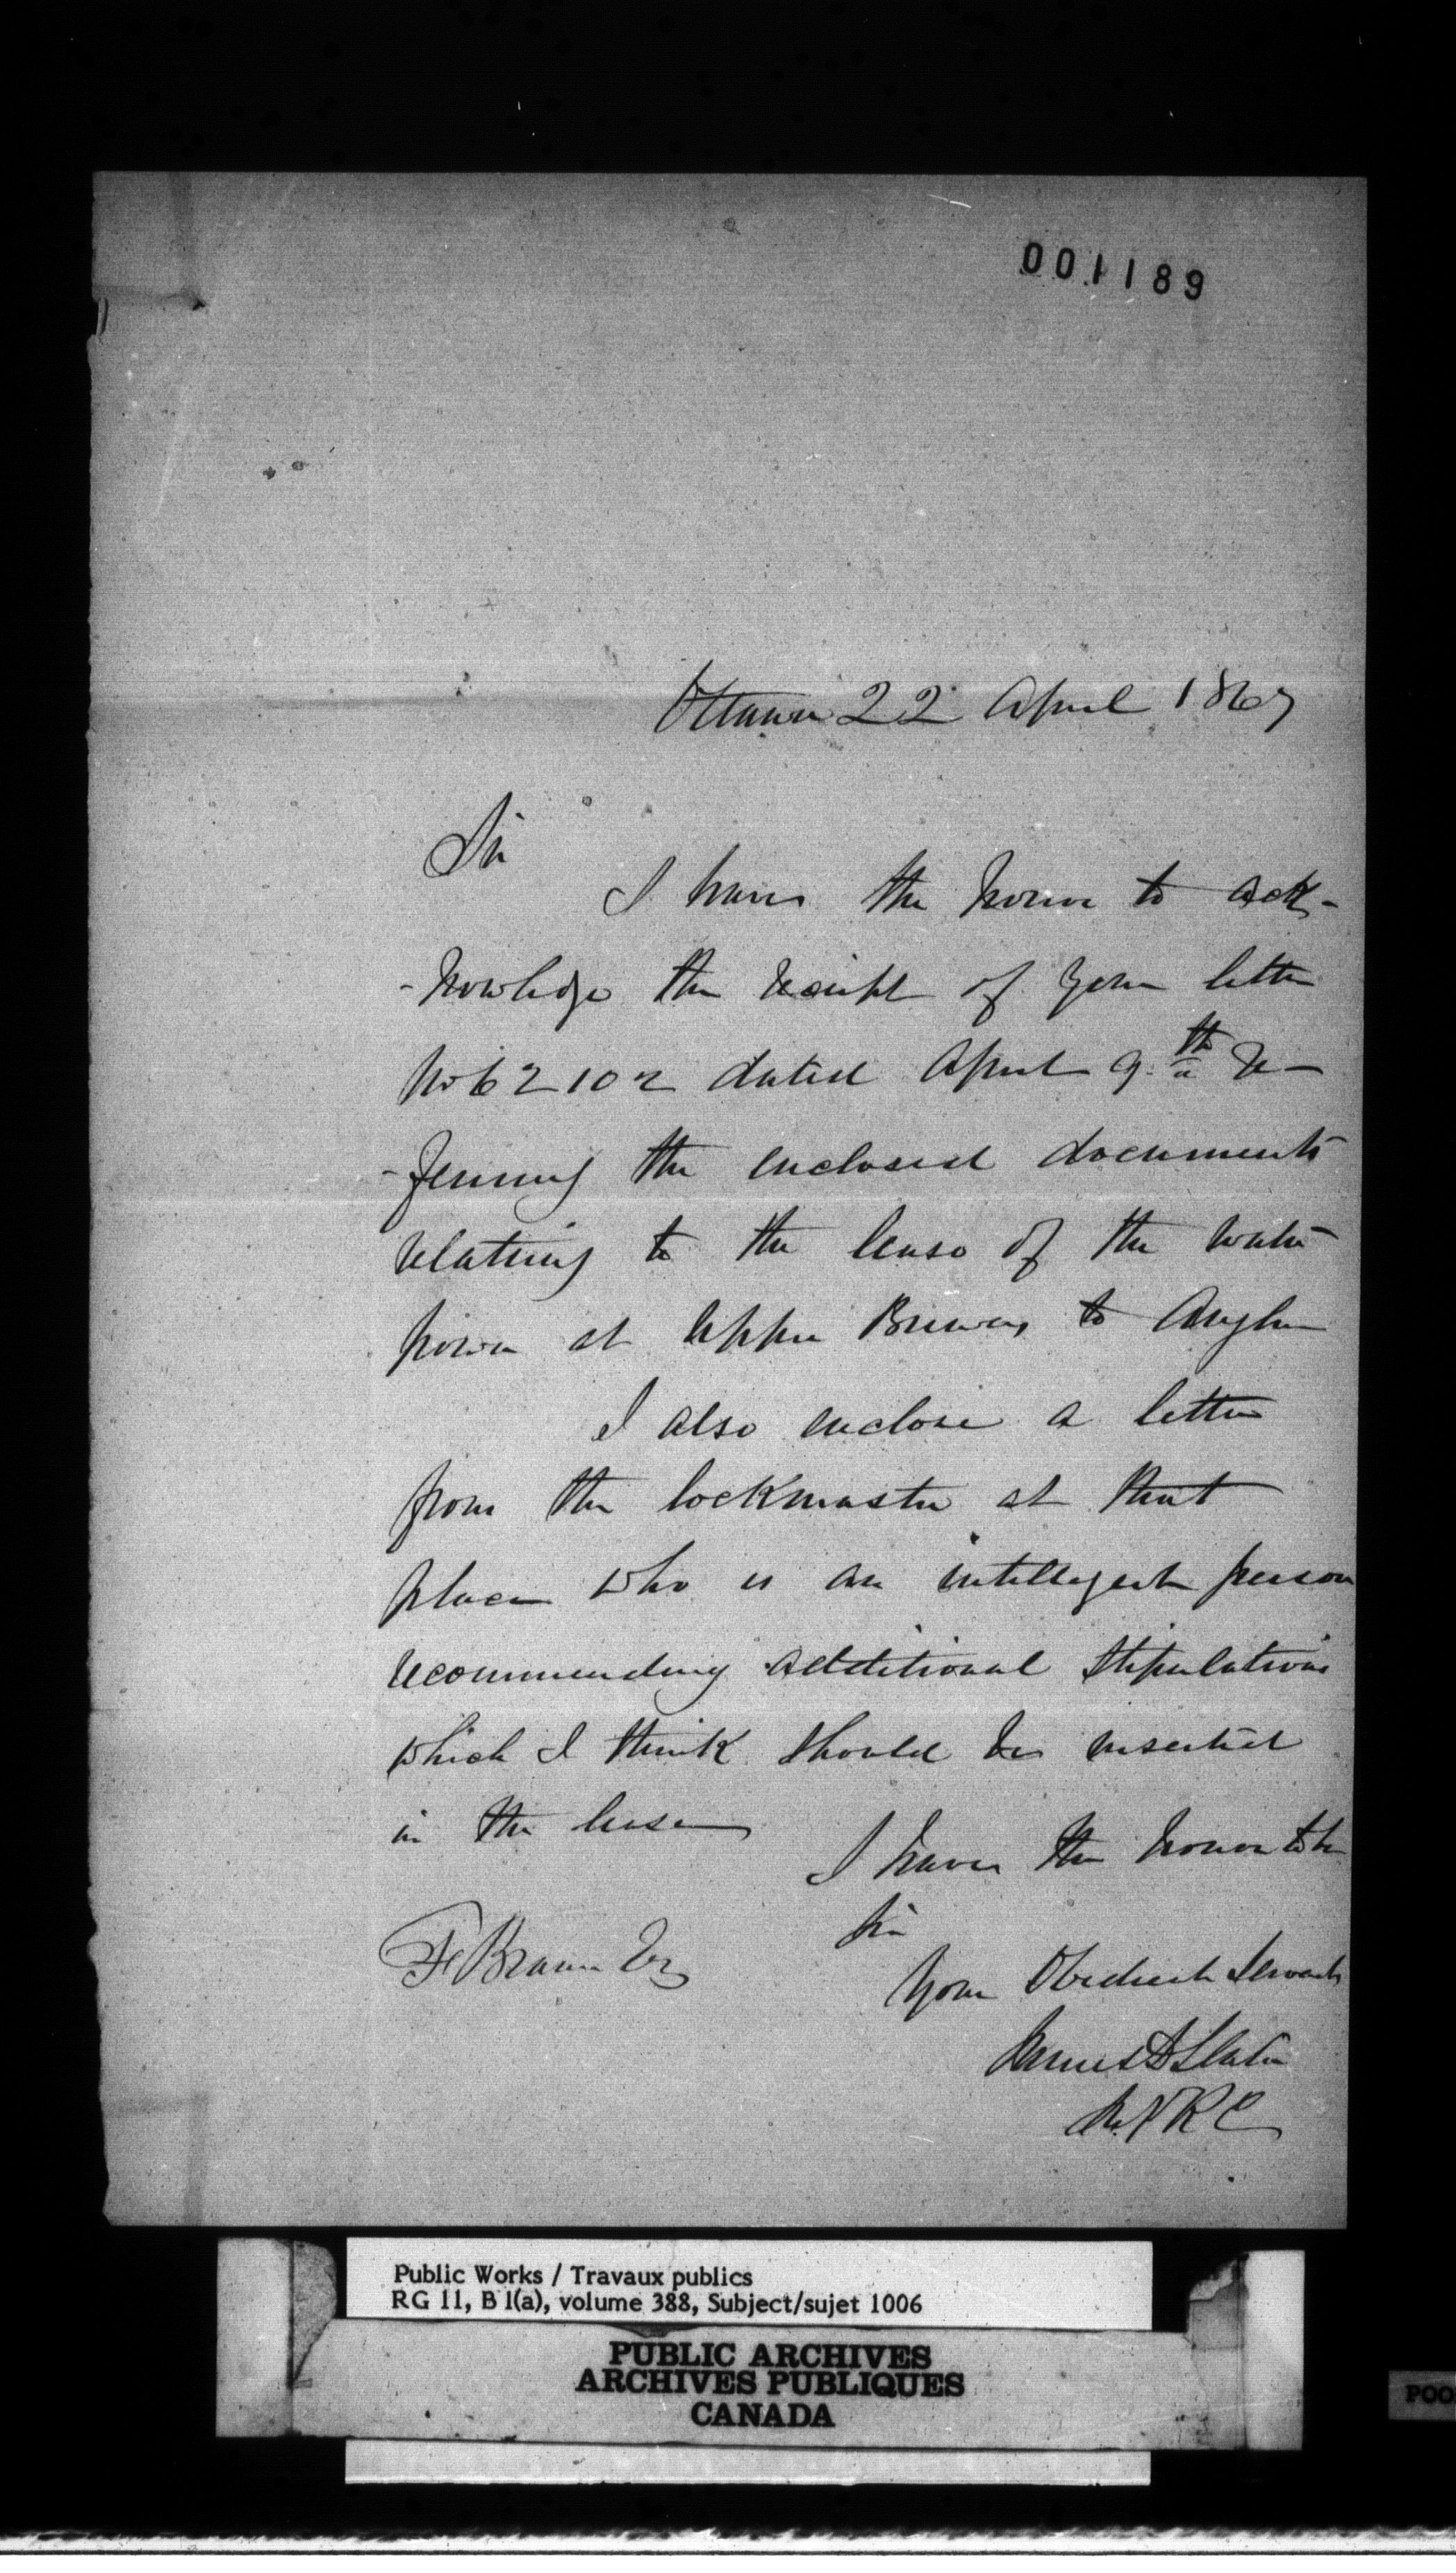 001189
Ottawa 22 April 1867
Sir
I have the honor to ack-
-nowledge the receipt of your letter
No 62102 dated April 9th re-
-ferring the enclosed documents
relating to the lease of the water
power at Upper Brewers to Anglin
I also enclose a letter
from the lockmaster at that
place who is an intelligent person
recommending additional stipulations
which I think should be inserted
in the lease
I have the honor to be
Sir
F Braun Esq
Your Obedient Servant
James D Slater
Public Works / Travaux publics
RG 11, B 1(a), volume 388, Subject/sujet 1006
PUBLIC ARCHIVES
ARCHIVES PUBLIQUES
CANADA
POO